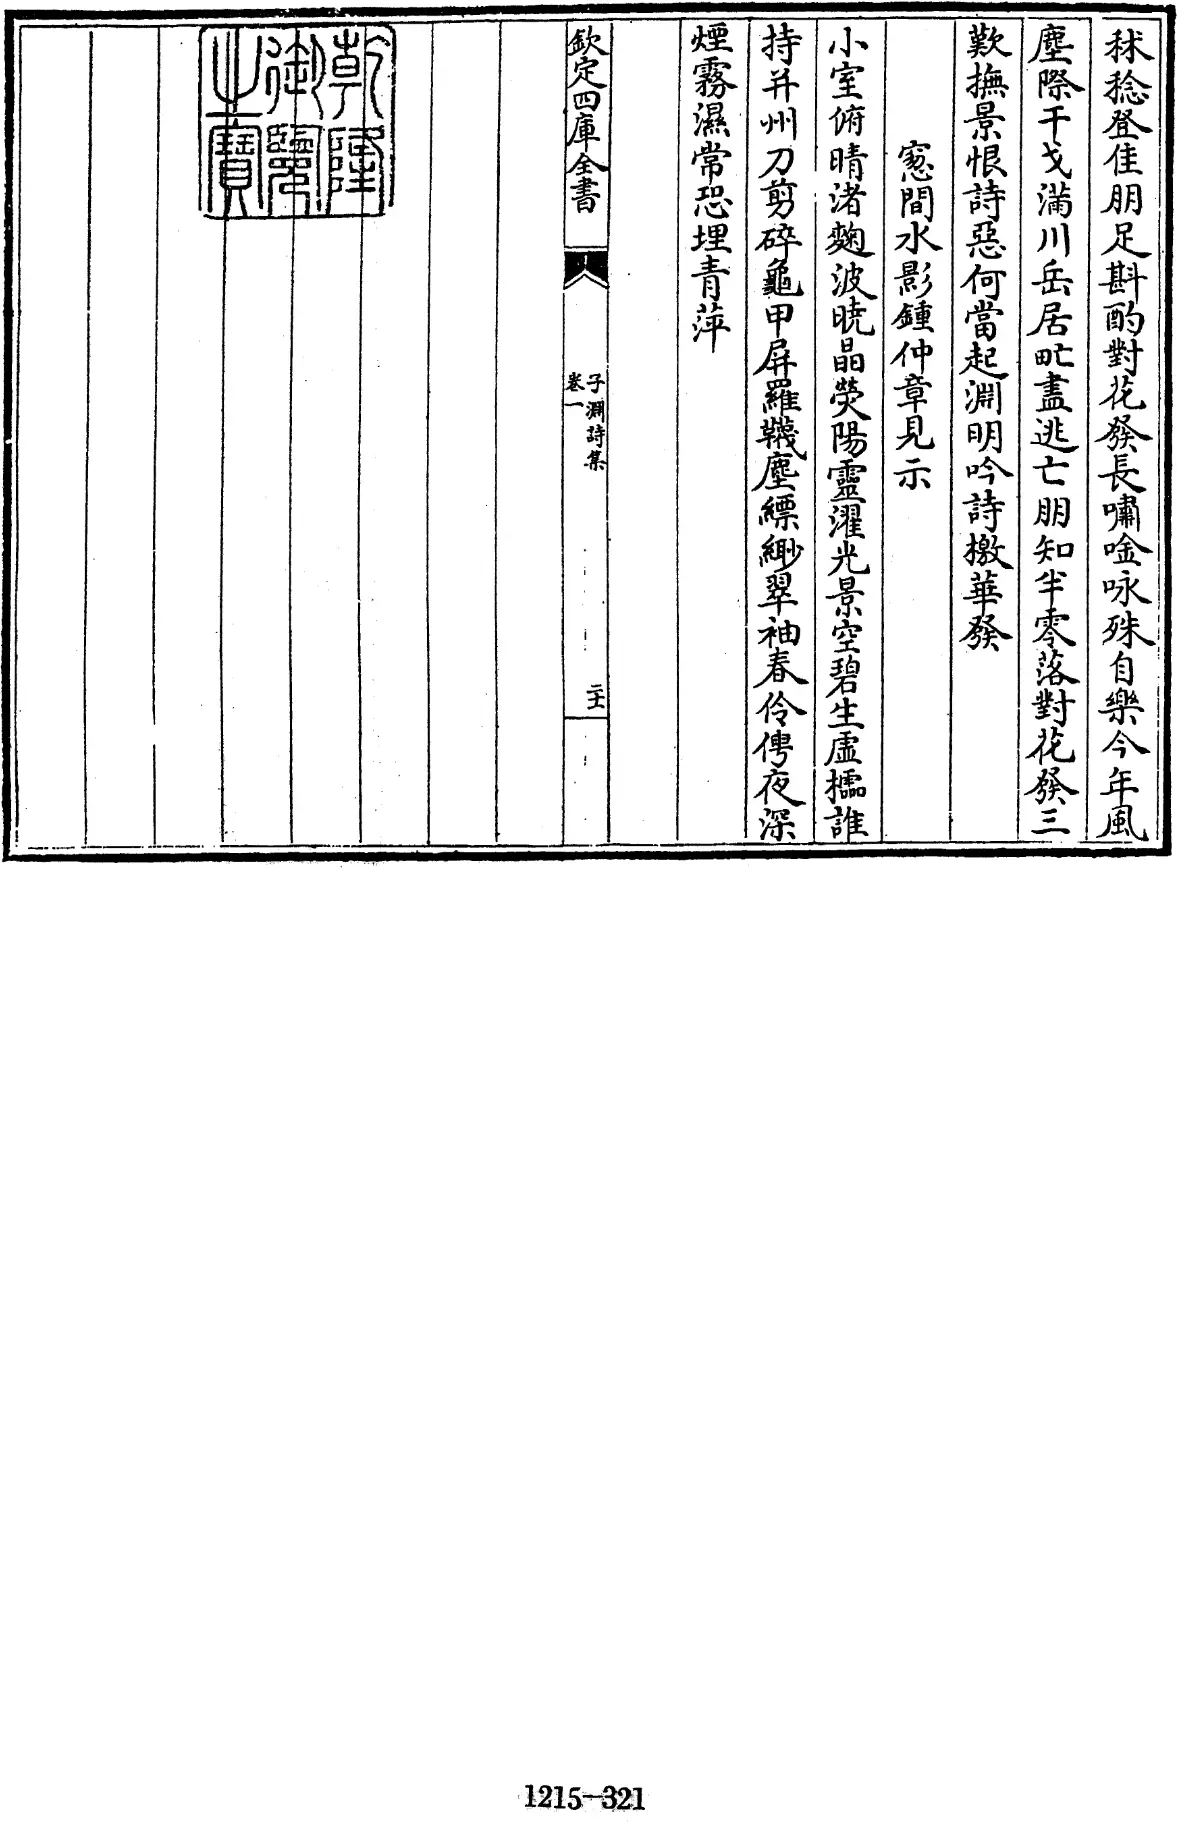 秫稔登佳朋足斟酌對花發長嘯唫咏殊自樂今年風
塵際干戈滿川岳居甿盡逃亡朋知半零落對花發三
歎撫景恨詩惡何當起淵明吟詩檄華發
窻間水影鍾仲章見示
小室俯晴渚麹波曉晶熒陽靈濯光景空碧生虛櫺誰
持并州刀剪碎龜甲屏羅韈塵縹緲翠袖春伶俜夜深
煙霧濕常恐埋青萍
欽定四庫全書
子淵詩集
卷一
二十七
乾隆御覽之寶
1215-321